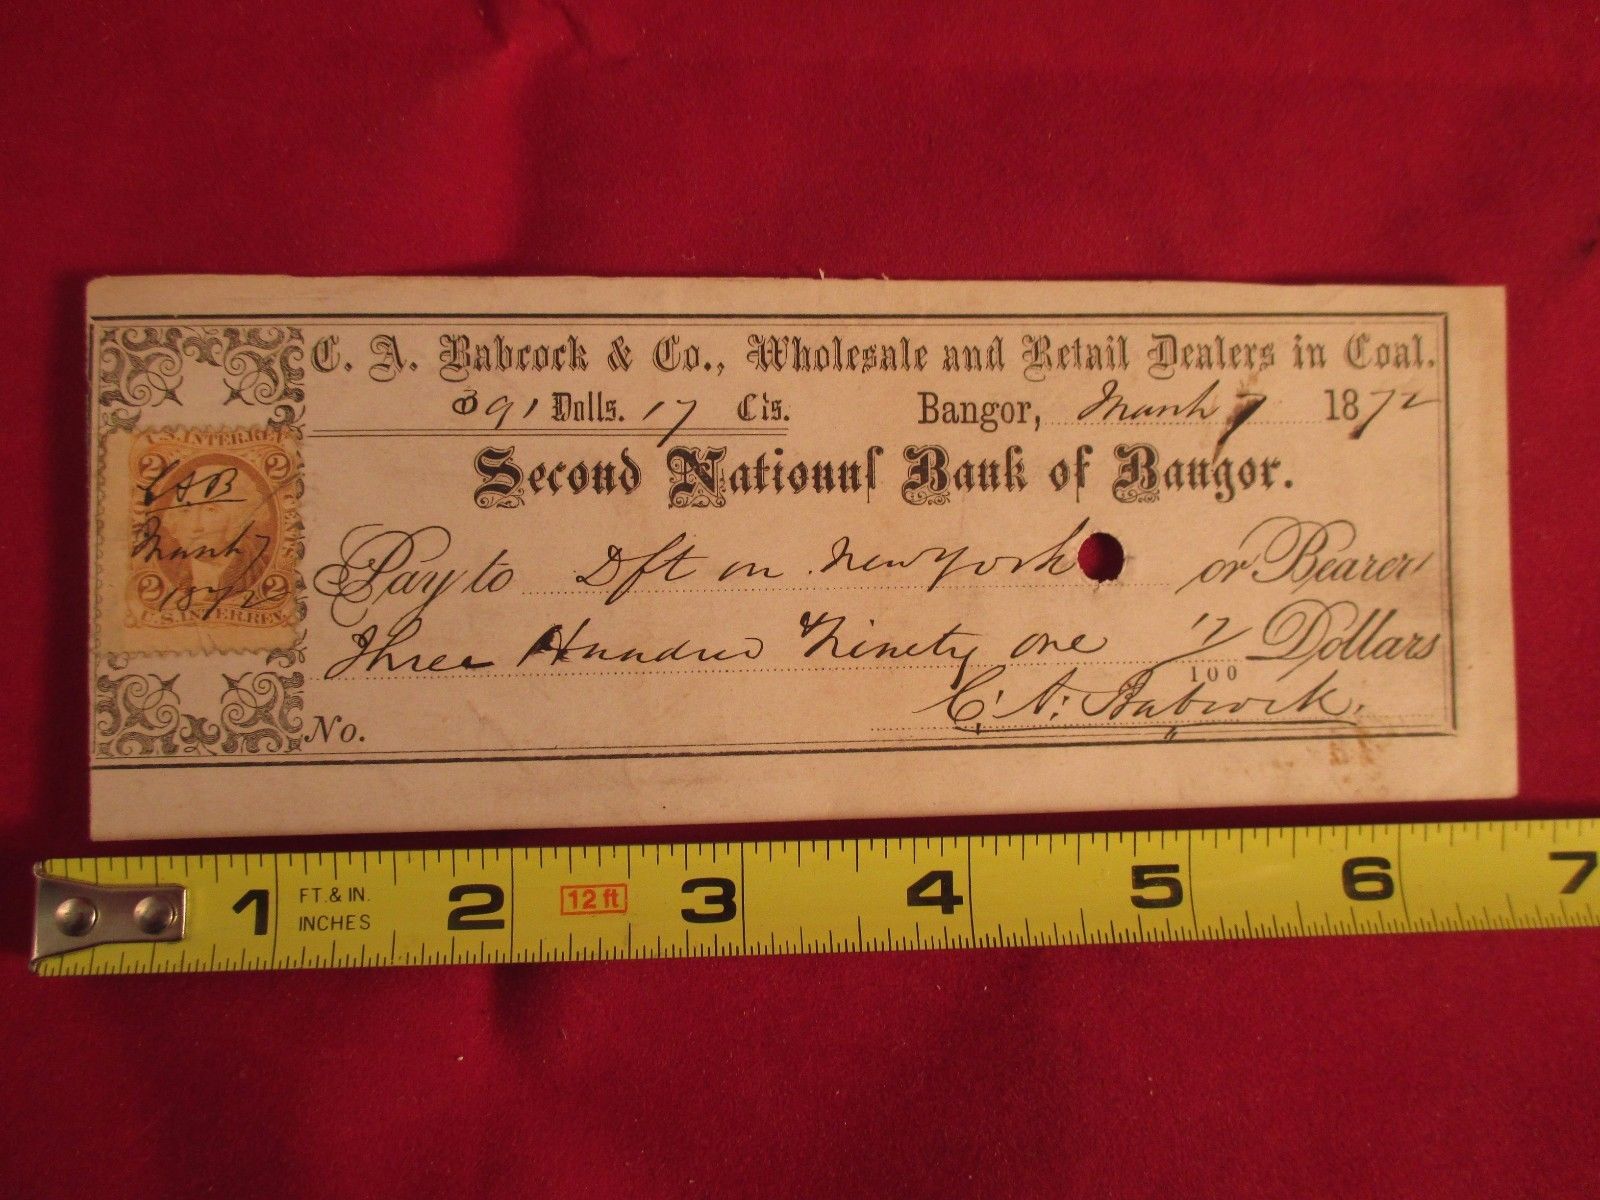 C. A. Babcock & Co., Wholesale and Retail Dealers in Coal.
391 Dolls. 17 Cts. Bangor, March 7 1872
Second National Bank of Bangor.
Pay to Dft on New York or Bearer
Three Hundred Ninety one 17/100 Dollars
C. A. Babcock.
No.
U.S. INTER. REV.
2 2
C A B
CENTS
March 7
2 2
1872
U.S. INTER. REV.
1 FT. & IN. INCHES 2 12 ft 3 4 5 6 7